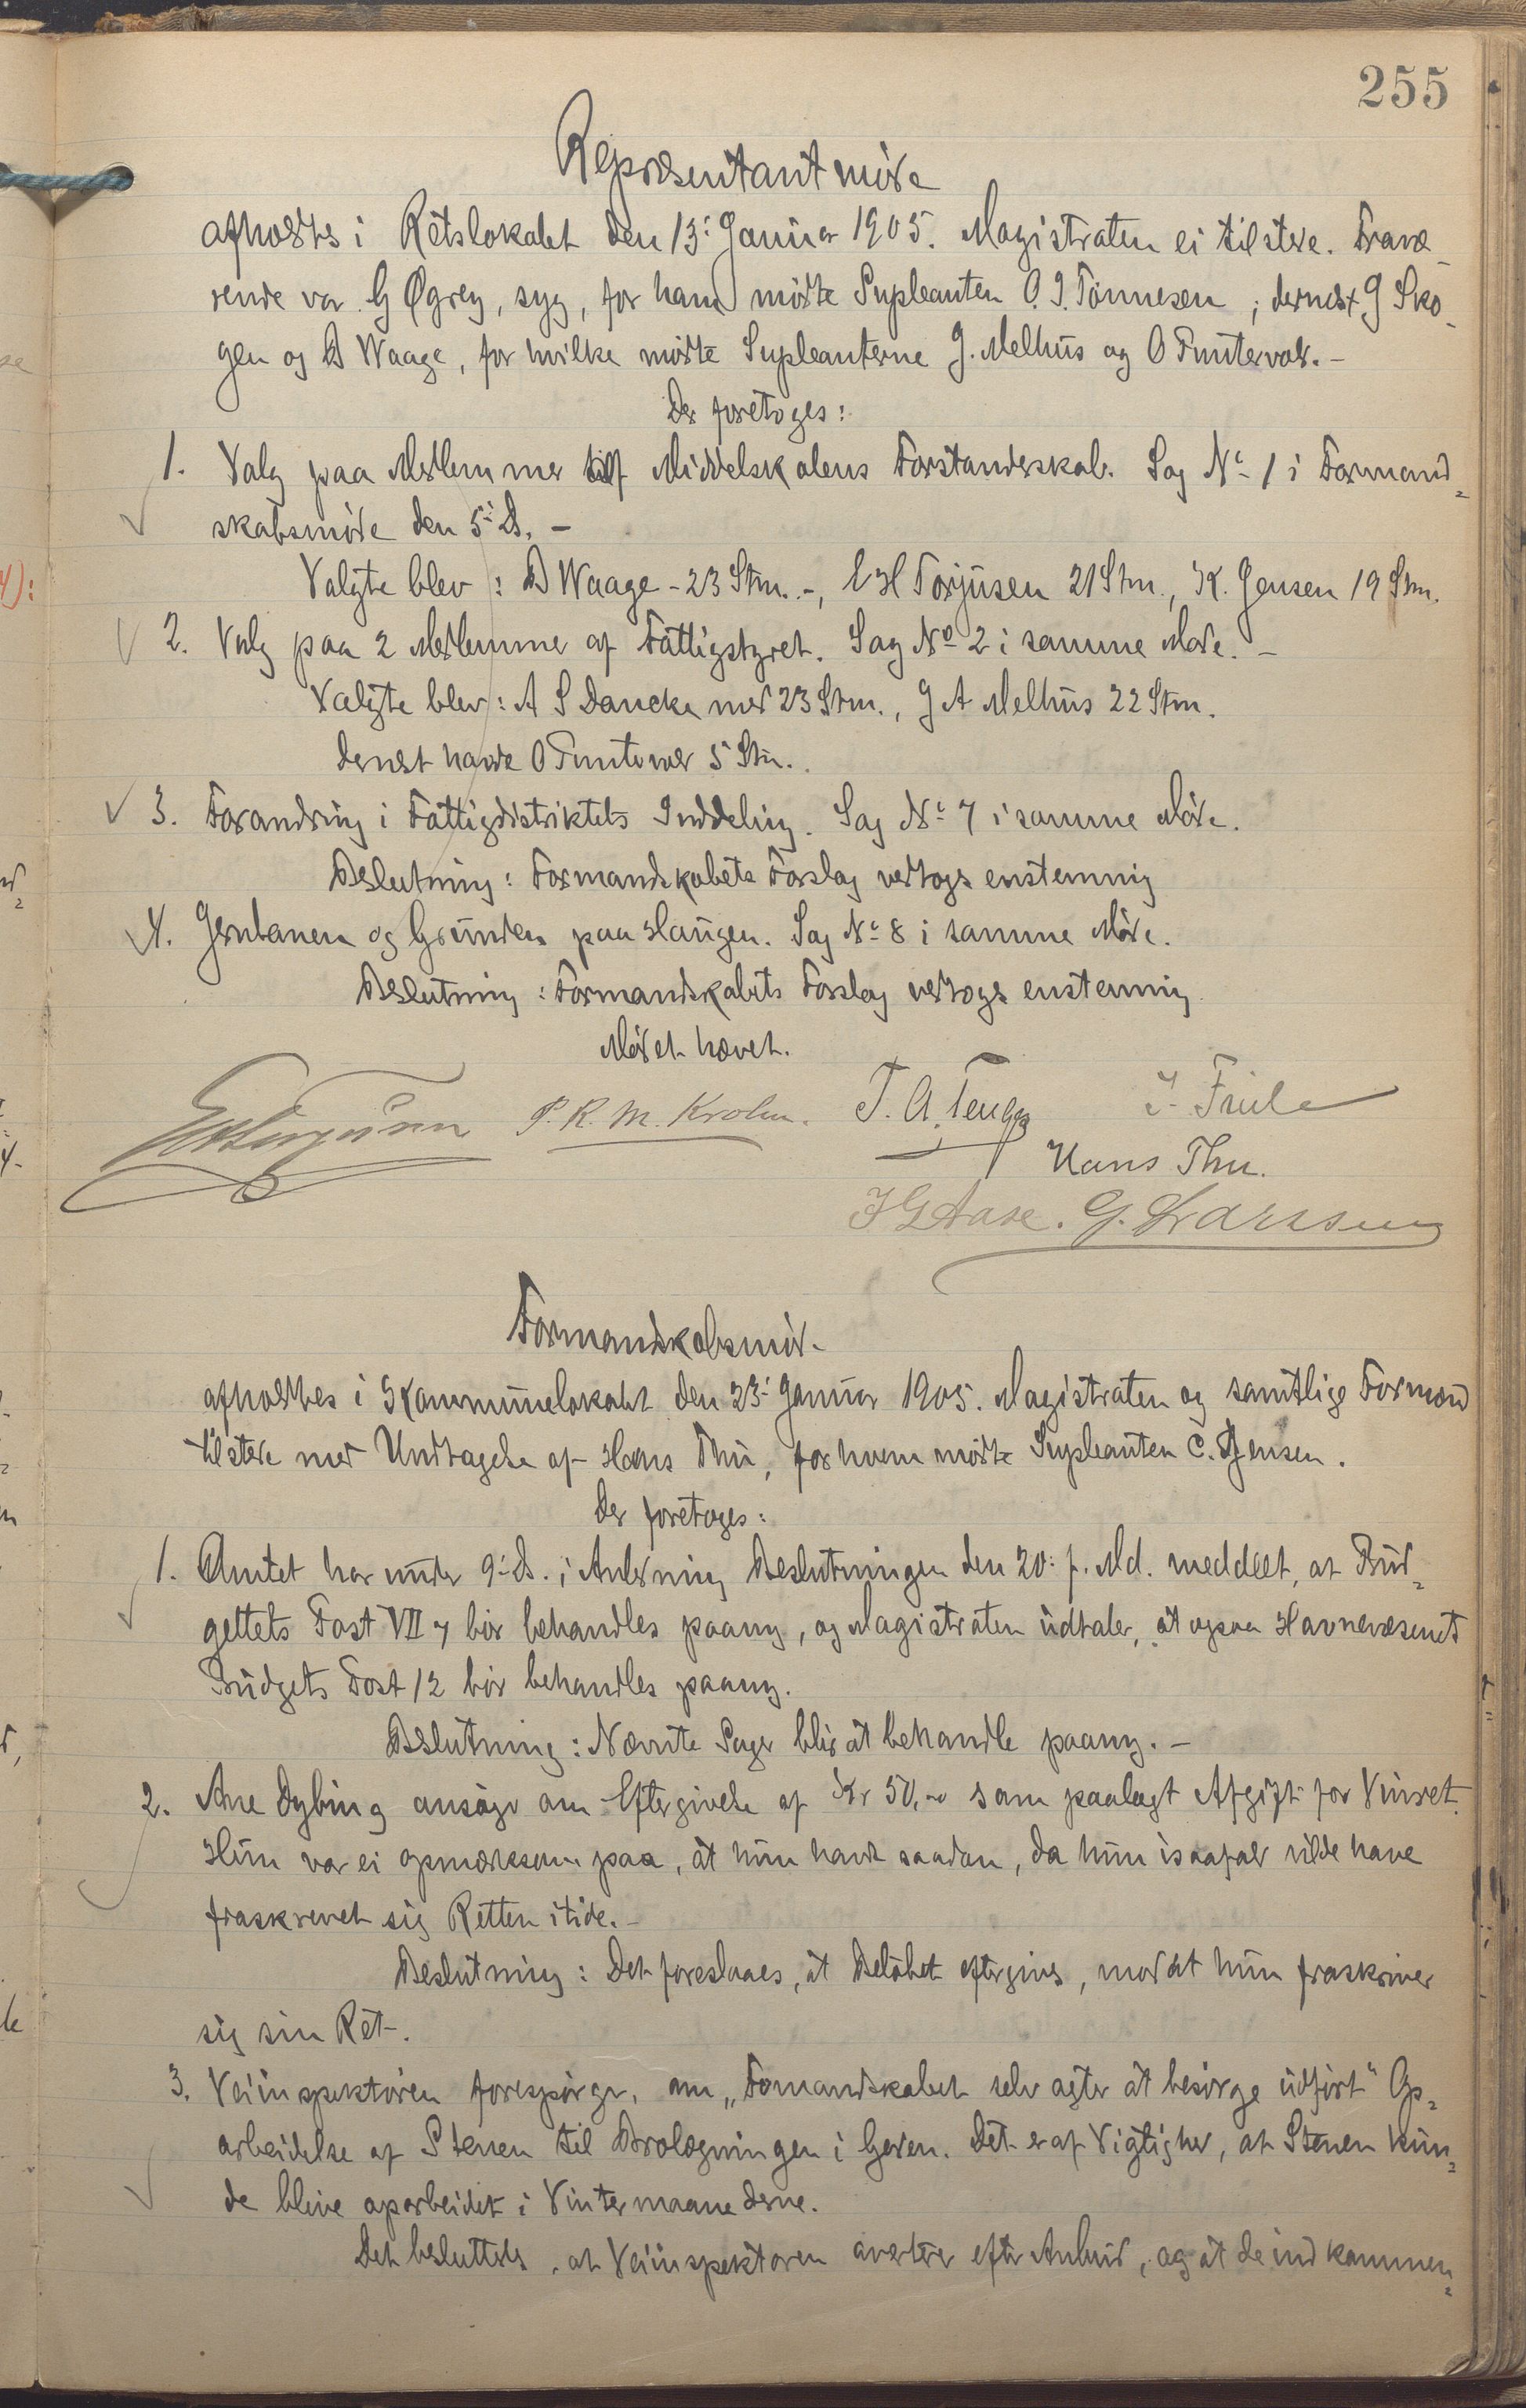 255
Repræsentantmøde
afholdtes i Retslokalet den 13: Januar 1905. Magistraten ei tilstede. Fravæ-
rende var G Øgrey, syg, for ham mødte Supleanten O. I. Tønnesen; dernæst G Sko-
gen og D Waage, for hvilke mødte Supleanterne G. Melhus og O Tuntervold. -
Der foretoges:
1. Valg paa Medlemmer af Middelskolens Forstanderskab. Sag No 1 i Formand-
skabsmøde den 5: ds. -
Valgte blev: D Waage - 23 Stm. -, E H Torjusen 21 Stm., K. Jensen 19 Stm.
2. Valg paa 2 Medlemmer af Fattigstyret. Sag No 2 i samme Møde. -
Valgte blev: A S Dancke med 23 Stm., G A Melhus 22 Stm.
Dernæst havde O Tuntervold 5 Stm.
3. Forandring i Fattigdistriktets Inddeling. Sag No 7 i samme Møde.
Beslutning: Formandskabets Forslag vedtoges enstemmig
4. Jernbanen og Grunden paa Haugen. Sag No 8 i samme Møde.
Beslutning: Formandskabets Forslag vedtoges enstemmig
Mødet hævet.
E H Torjusen P. R. M. Krohn. T. A. J. Friele
Hans Thu.
J G Aase. G. Larssen
Formandskabsmøde
afholdtes i Kommunelokalet den 23: Januar 1905. Magistraten og samtlige Formænd
tilstede med Undtagelse af Hans Thu, for hvem mødte Supleanten C. Jensen.
Der foretoges:
1. Amtet har under 9: ds. i Anledning Beslutningen den 20: f. Md. meddelt, at Bud-
gettets Post VII 7 bør behandles paany, og Magistraten udtaler, at ogsaa Havnevæsenets
Budgets Post 12 bør behandles paany.
Beslutning: Nævnte Sager blir at behandle paany. -
2. Ane Dybing ansøger om Eftergivelse af Kr 50,- som paalagt Afgift for Vinret.
Hun var ei opmærksom paa, at hun havde saadan, da hun isaafald vilde have
fraskrevet sig Retten itide. -
Beslutning: Det foreslaaes, at Beløbet eftergives, mod at hun fraskriver
sig sin Ret.
3. Veiinspektøren forespørger, om „Fomandskabet selv agter at besørge udført" Op-
arbeidelse af Stenen til Brolægningen i Gaden. Det er af Vigtighed, at Stenen kun-
de blive oparbeidet i Vintermaanederne.
Det besluttedes, at Veiinspektøren averterer efter Anbud, og at de indkommen-